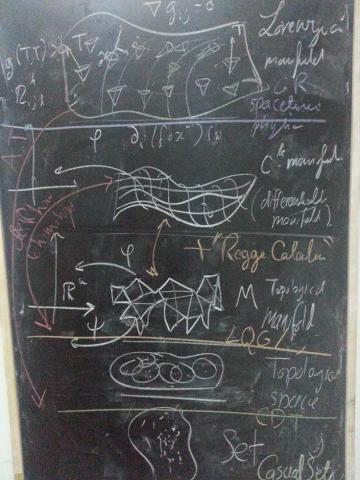 ∇g_{ij}=0
Lorenzian
manifold
g(T,T)>
T
R^i_{jkl}
GR
spacetime
physics
φ ∂_i(f∘x⁻¹)(x)
C^k manifold
(differentiable
manifold)
+ "Regge Calculus"
φ
ℝⁿ
M
Topological
manifold
ψ
LQG
Topological
space
CDT
Set
Casual Sets